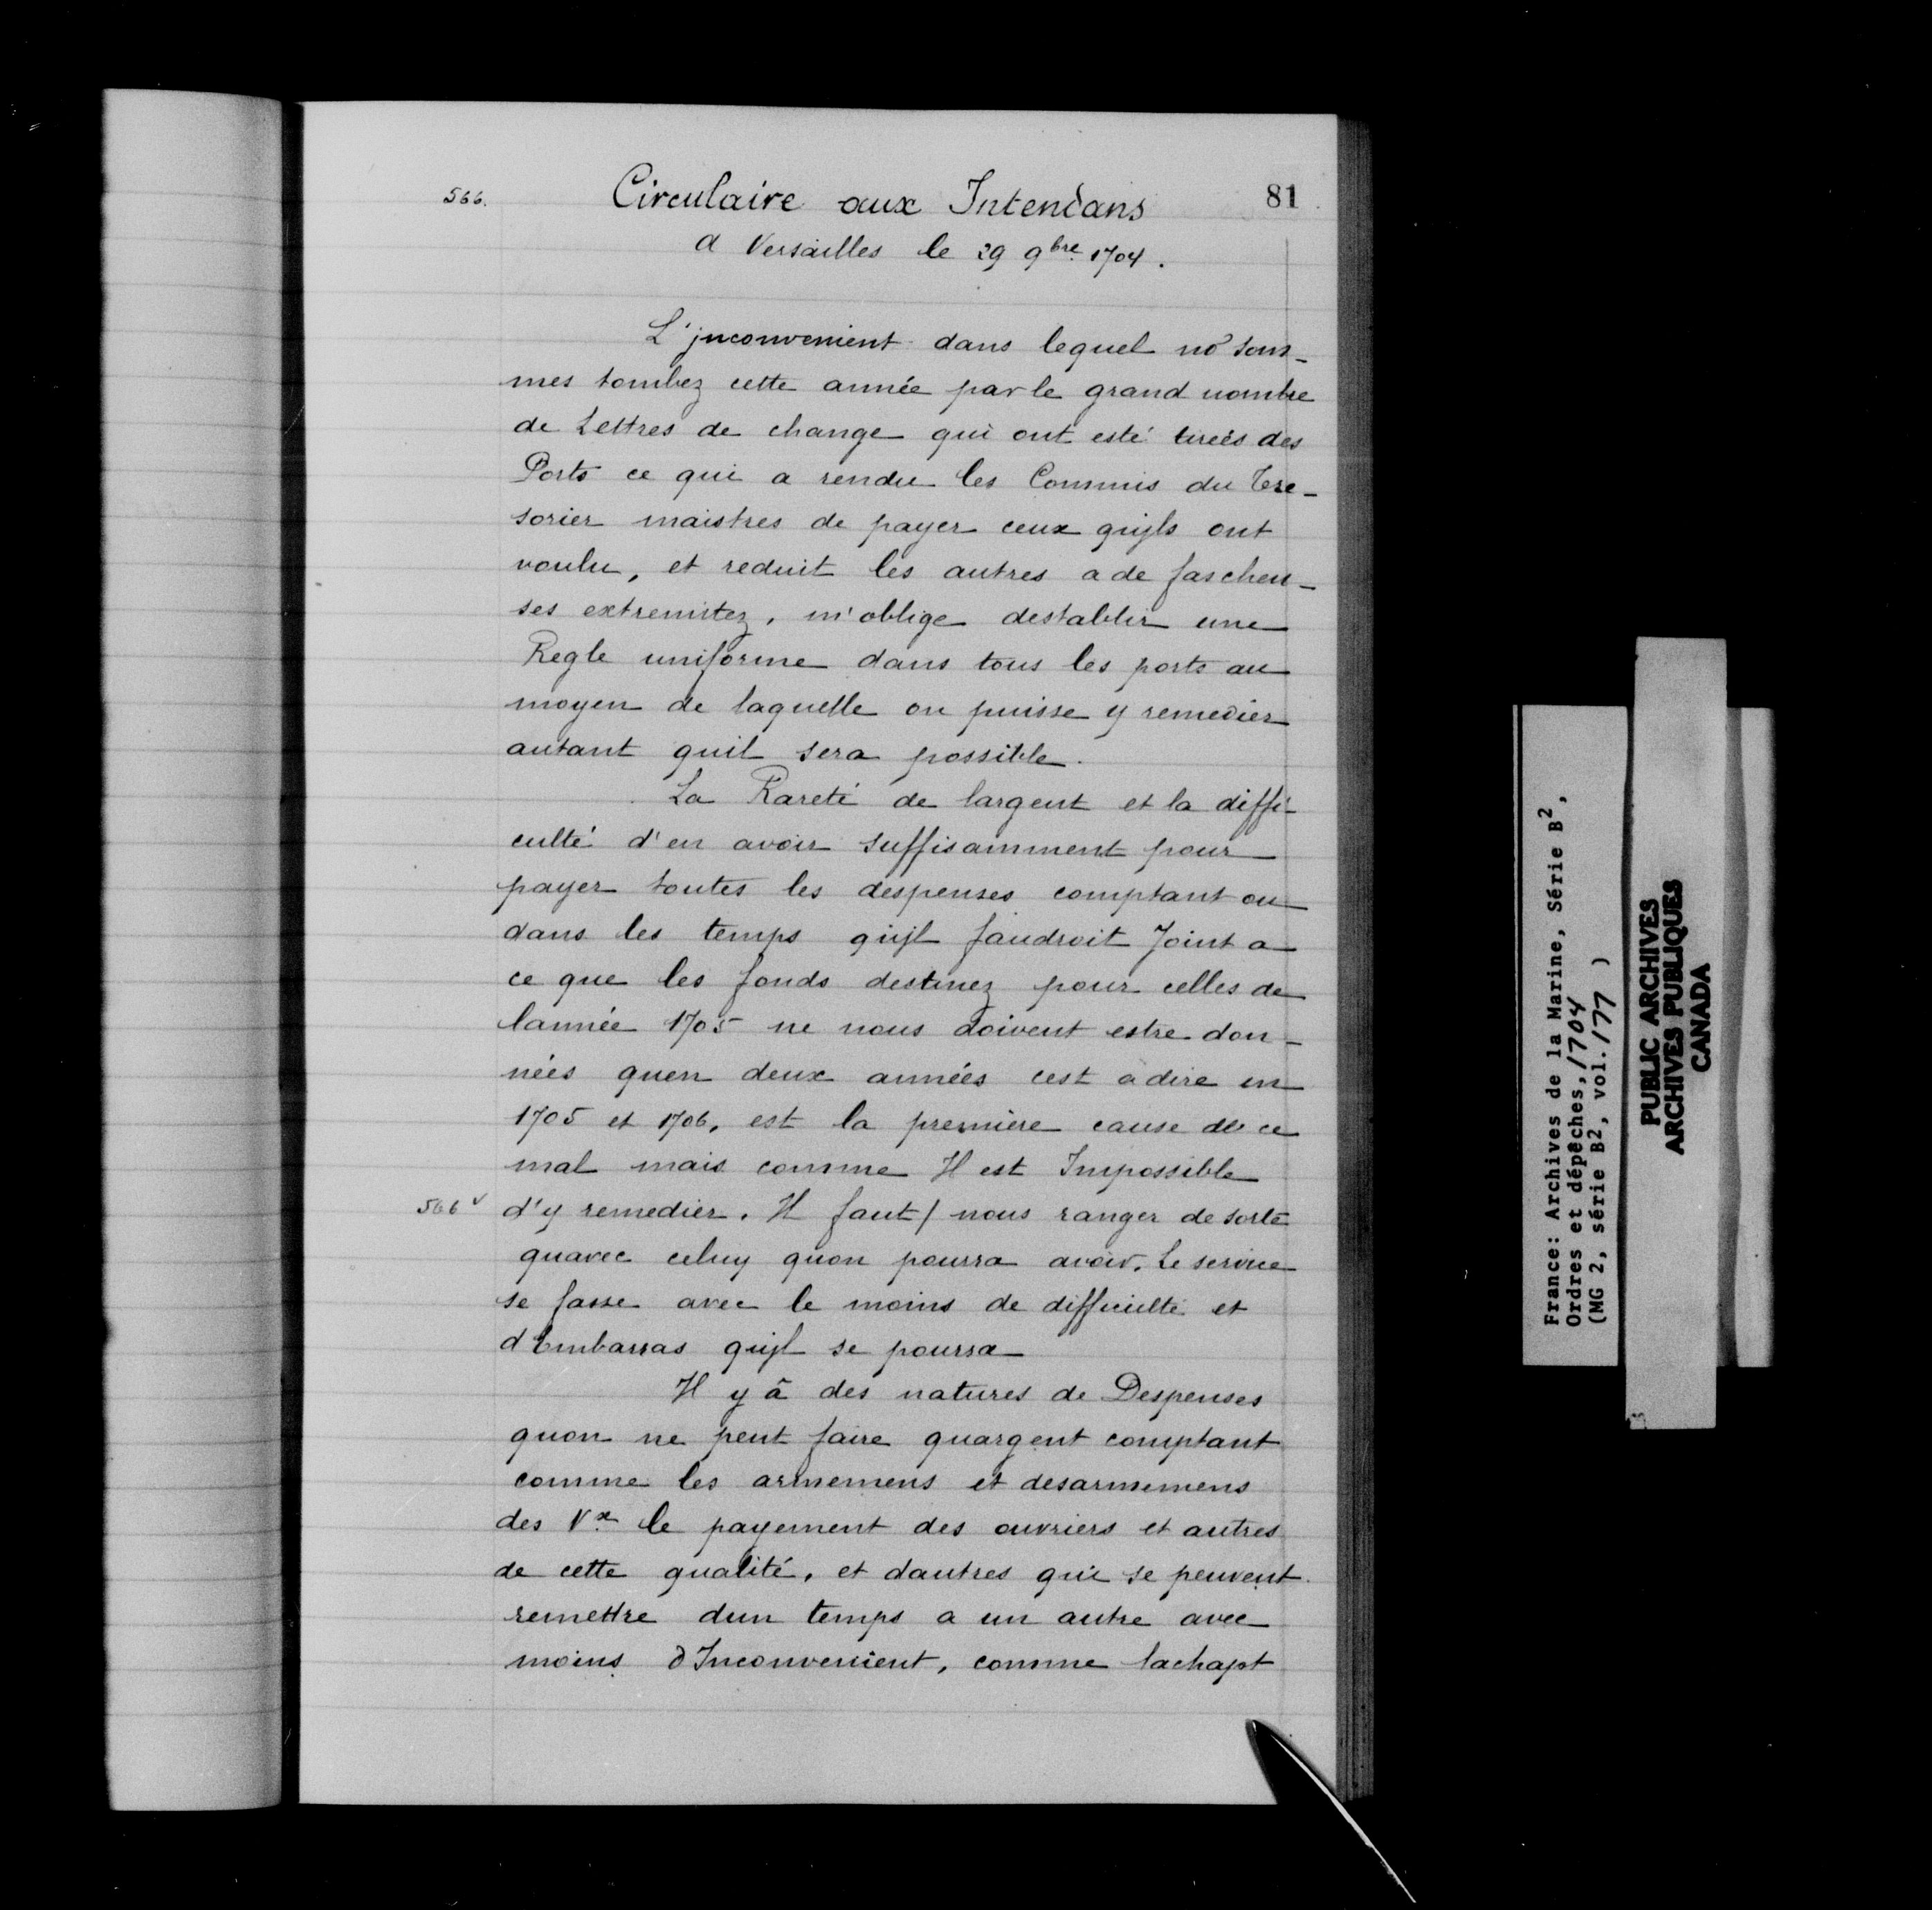 566.
Circulaire aux Intendans
81
A Versailles le 29 9bre 1704.
L'jnconvenient dans lequel no° som-
mes tombez cette année par le grand nombre
de Lettres de change qui ont esté tireés des
Ports ce qui a rendu les Commis du Tre-
sorier maistres de payer ceux qu'jls ont
voulu, et reduit les autres a de fascheu-
ses extremitez, m'oblige destablir une
Regle uniforme dans tous les ports au
moyen de laquelle on puisse y remedier
autant quil sera possible.
La Rareté de largent et la diffi-
culté d'en avoir suffisamment pour
payer toutes les despenses comptant ou
dans les temps qu'jl faudroit Joint a
ce que les fonds destinez pour celles de
lannée 1705 ne nous doivent estre don-
nées quen deux années cest a dire en
1705 et 1706, est la premiere cause de ce
mal mais comme Il est Impossible
566 v d'y remedier. Il faut / nous ranger de sorte
quavec celuy quon pourra avoir. Le service
se fasse avec le moins de difficulté et
d'Embarras qu'jl se pourra
Il y à des natures de Despenses
quon ne peut faire quargent comptant
comme les armemens et desarmemens
des Vx le payement des ouvriers et autres
de cette qualité, et dautres qui se peuvent
remettre dun temps a un autre avec
moins d'Inconvenient, comme lachapt
France: Archives de la Marine, Série B2,
Ordres et dépêches, 1704
(MG 2, série B2, vol. 177 )
PUBLIC ARCHIVES
ARCHIVES PUBLIQUES
CANADA